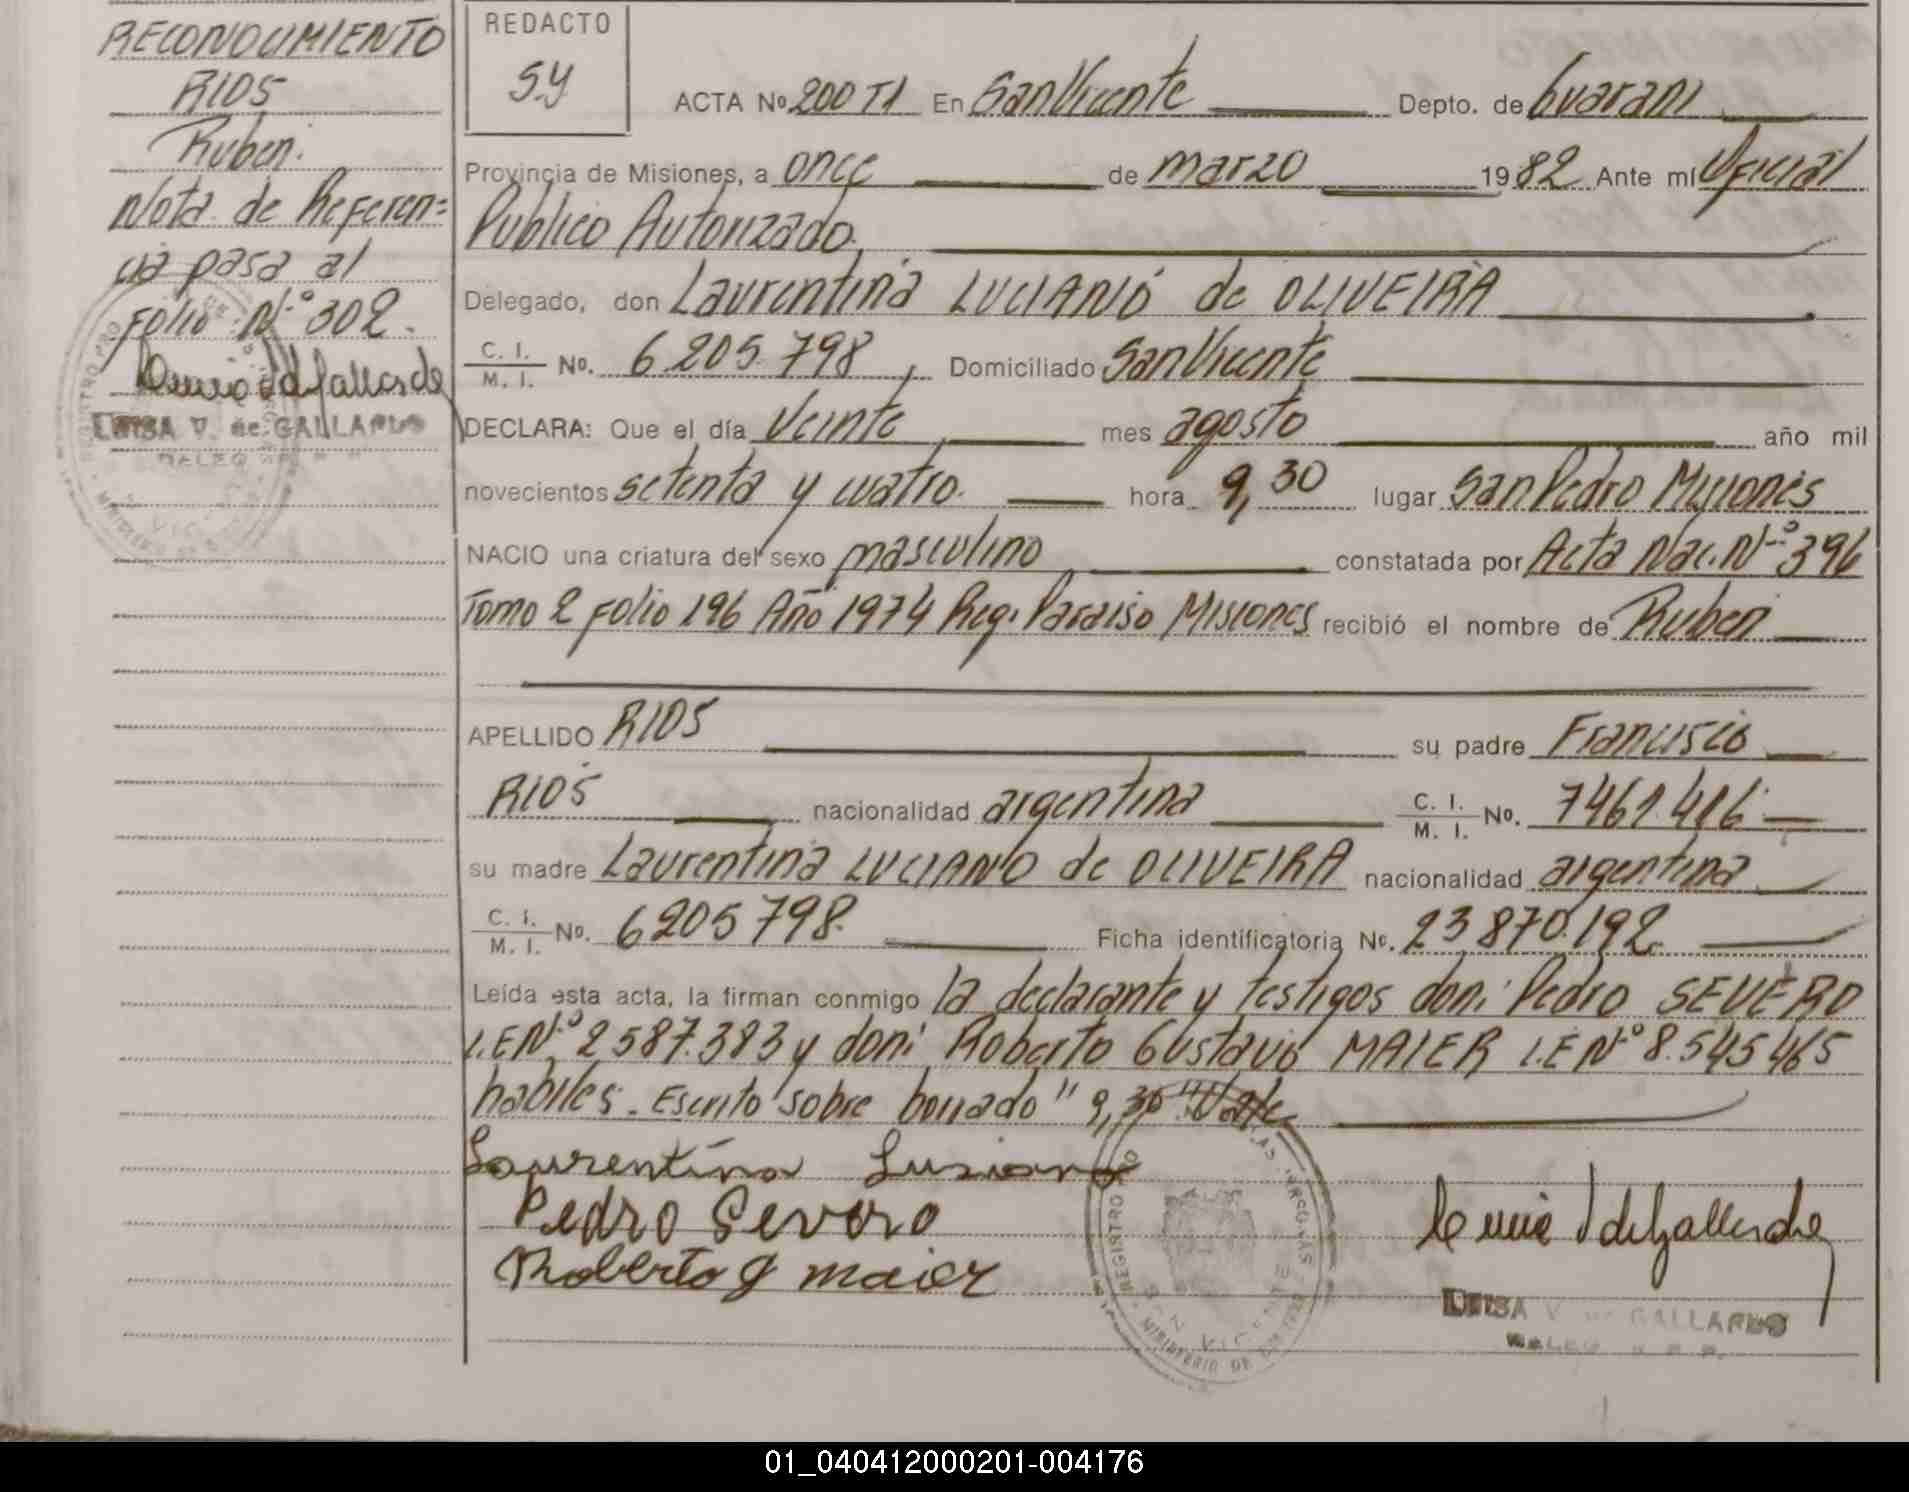 RECONOCIMIENTO
RIOS
Ruben.
Nota de Referen=
cia pasa al
Folio Nº 302.
LUISA V. de GALLARDO
REDACTO
S.Y
ACTA Nº 200 T1 En San Vicente Depto. de Guarani
Provincia de Misiones, a once de marzo 1982 Ante mí Oficial
Publico Autorizado.
Delegado, don Laurentina LUCIANO de OLIVEIRA
C. I. / M. I. No. 6205.798, Domiciliado San Vicente
DECLARA: Que el día Veinte, mes agosto año mil
novecientos setenta y cuatro. hora 9,30 lugar San Pedro Misiones
NACIO una criatura del sexo masculino constatada por Acta Nac. Nº 396
Tomo 2 Folio 196 Año 1974 Reg. Paraiso Misiones recibió el nombre de Ruben
APELLIDO RIOS su padre Francisco
RIOS nacionalidad argentina C. I. / M. I. No. 7461.416.
su madre Laurentina LUCIANO de OLIVEIRA nacionalidad argentina
C. I. / M. I. No. 6205798. Ficha identificatoria No. 23.870.192.
Leída esta acta, la firman conmigo la declarante y testigos don: Pedro SEVERO
L.E Nº 2587.383 y don: Roberto Gustavo MAIER L.E Nº 8.545465
habiles. Escrito sobre borrado " 9,30 " Vale
Laurentina Lusiano
Pedro Severo
Roberto G maier
LUISA V. de GALLARDO
REGISTRO PRO
SAN VICENTE
01_040412000201-004176